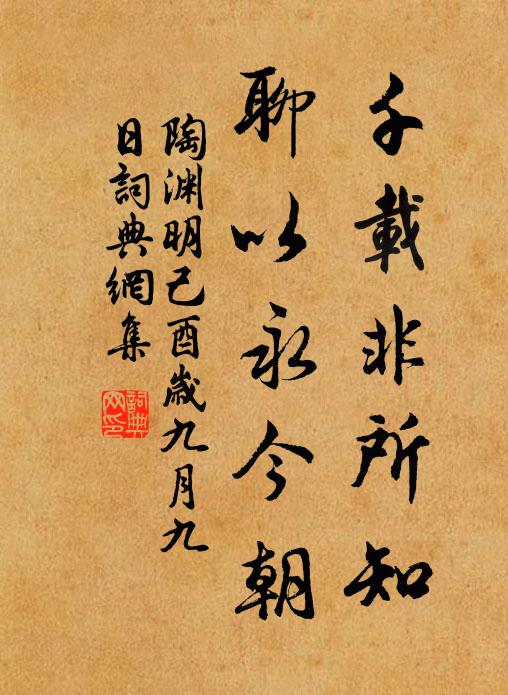 千載非所知
聊以永今朝
陶淵明己酉歲九月九
日詞典網集
詞典
网印